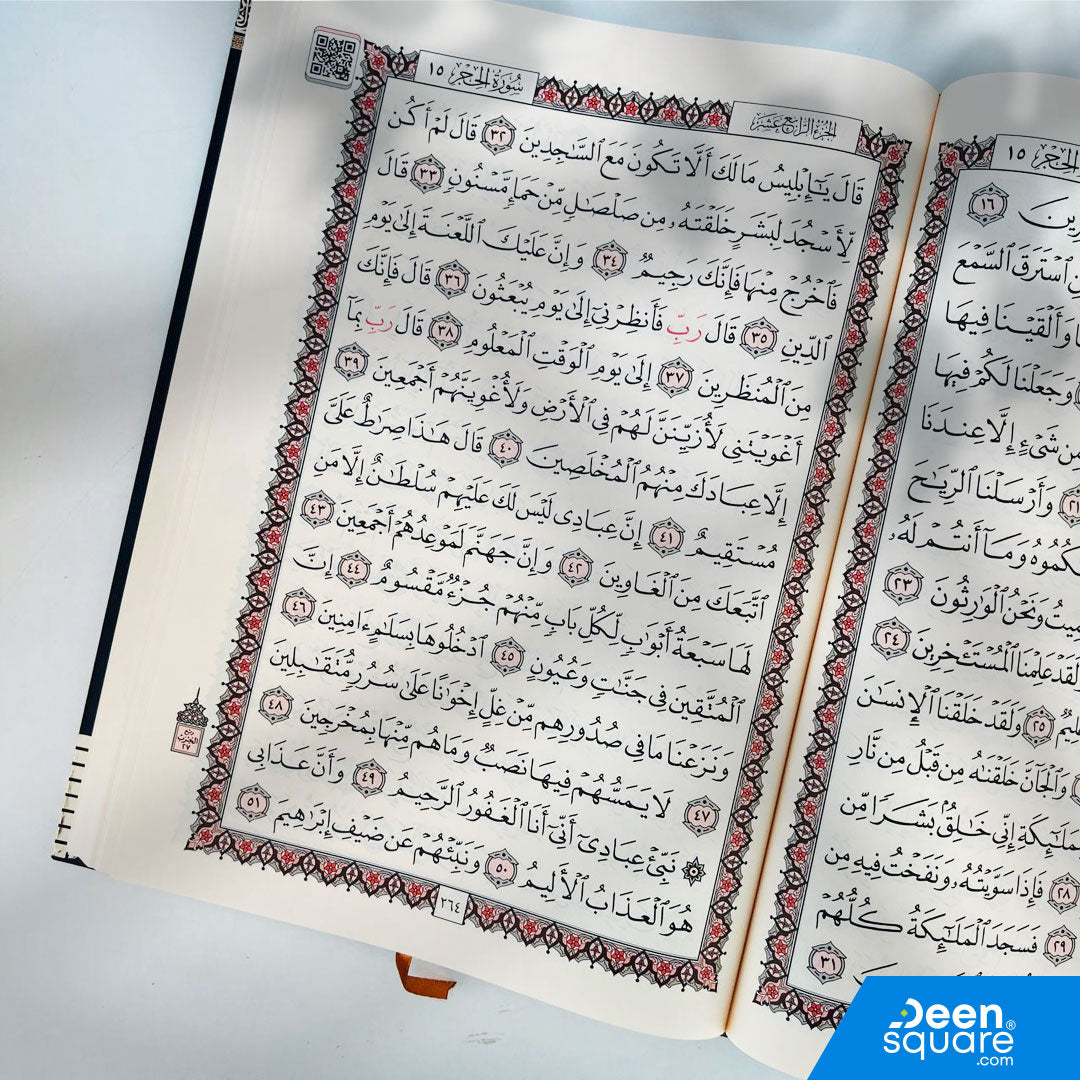 سُورَةُ الحِجْرِ ١٥
الجُزْءُ الرَّابِعَ عَشَرَ
قَالَ يَٰٓإِبْلِيسُ مَا لَكَ أَلَّا تَكُونَ مَعَ ٱلسَّٰجِدِينَ ٣٢ قَالَ لَمْ أَكُن
لِّأَسْجُدَ لِبَشَرٍ خَلَقْتَهُۥ مِن صَلْصَٰلٍ مِّنْ حَمَإٍ مَّسْنُونٍ ٣٣ قَالَ
فَٱخْرُجْ مِنْهَا فَإِنَّكَ رَجِيمٌ ٣٤ وَإِنَّ عَلَيْكَ ٱللَّعْنَةَ إِلَىٰ يَوْمِ
ٱلدِّينِ ٣٥ قَالَ رَبِّ فَأَنظِرْنِىٓ إِلَىٰ يَوْمِ يُبْعَثُونَ ٣٦ قَالَ فَإِنَّكَ
مِنَ ٱلْمُنظَرِينَ ٣٧ إِلَىٰ يَوْمِ ٱلْوَقْتِ ٱلْمَعْلُومِ ٣٨ قَالَ رَبِّ بِمَآ
أَغْوَيْتَنِى لَأُزَيِّنَنَّ لَهُمْ فِى ٱلْأَرْضِ وَلَأُغْوِيَنَّهُمْ أَجْمَعِينَ ٣٩
إِلَّا عِبَادَكَ مِنْهُمُ ٱلْمُخْلَصِينَ ٤٠ قَالَ هَٰذَا صِرَٰطٌ عَلَىَّ
مُسْتَقِيمٌ ٤١ إِنَّ عِبَادِى لَيْسَ لَكَ عَلَيْهِمْ سُلْطَٰنٌ إِلَّا مَنِ
ٱتَّبَعَكَ مِنَ ٱلْغَاوِينَ ٤٢ وَإِنَّ جَهَنَّمَ لَمَوْعِدُهُمْ أَجْمَعِينَ ٤٣
لَهَا سَبْعَةُ أَبْوَٰبٍ لِّكُلِّ بَابٍ مِّنْهُمْ جُزْءٌ مَّقْسُومٌ ٤٤ إِنَّ
ٱلْمُتَّقِينَ فِى جَنَّٰتٍ وَعُيُونٍ ٤٥ ٱدْخُلُوهَا بِسَلَٰمٍ ءَامِنِينَ ٤٦
وَنَزَعْنَا مَا فِى صُدُورِهِم مِّنْ غِلٍّ إِخْوَٰنًا عَلَىٰ سُرُرٍ مُّتَقَٰبِلِينَ
٤٧ لَا يَمَسُّهُمْ فِيهَا نَصَبٌ وَمَا هُم مِّنْهَا بِمُخْرَجِينَ ٤٨
۞ نَبِّئْ عِبَادِىٓ أَنِّىٓ أَنَا ٱلْغَفُورُ ٱلرَّحِيمُ ٤٩ وَأَنَّ عَذَابِى
هُوَ ٱلْعَذَابُ ٱلْأَلِيمُ ٥٠ وَنَبِّئْهُمْ عَن ضَيْفِ إِبْرَٰهِيمَ ٥١
٢٦٤
الحِجْرِ ١٥
١٦
ٱسْتَرَقَ ٱلسَّمْعَ
وَأَلْقَيْنَا فِيهَا
وَجَعَلْنَا لَكُمْ فِيهَا
مِّن شَىْءٍ إِلَّا عِندَنَا
٢١ وَأَرْسَلْنَا ٱلرِّيَٰحَ
وَمَآ أَنتُمْ لَهُۥ
وَنَحْنُ ٱلْوَٰرِثُونَ ٢٣
عَلِمْنَا ٱلْمُسْتَـْٔخِرِينَ ٢٤
٢٥ وَلَقَدْ خَلَقْنَا ٱلْإِنسَٰنَ
وَٱلْجَآنَّ خَلَقْنَٰهُ مِن قَبْلُ مِن نَّارِ
إِنِّى خَٰلِقٌۢ بَشَرًا مِّن
٢٨ فَإِذَا سَوَّيْتُهُۥ وَنَفَخْتُ فِيهِ مِن
٢٩ فَسَجَدَ ٱلْمَلَٰٓئِكَةُ كُلُّهُمْ
٣١
Deen®
square
.com